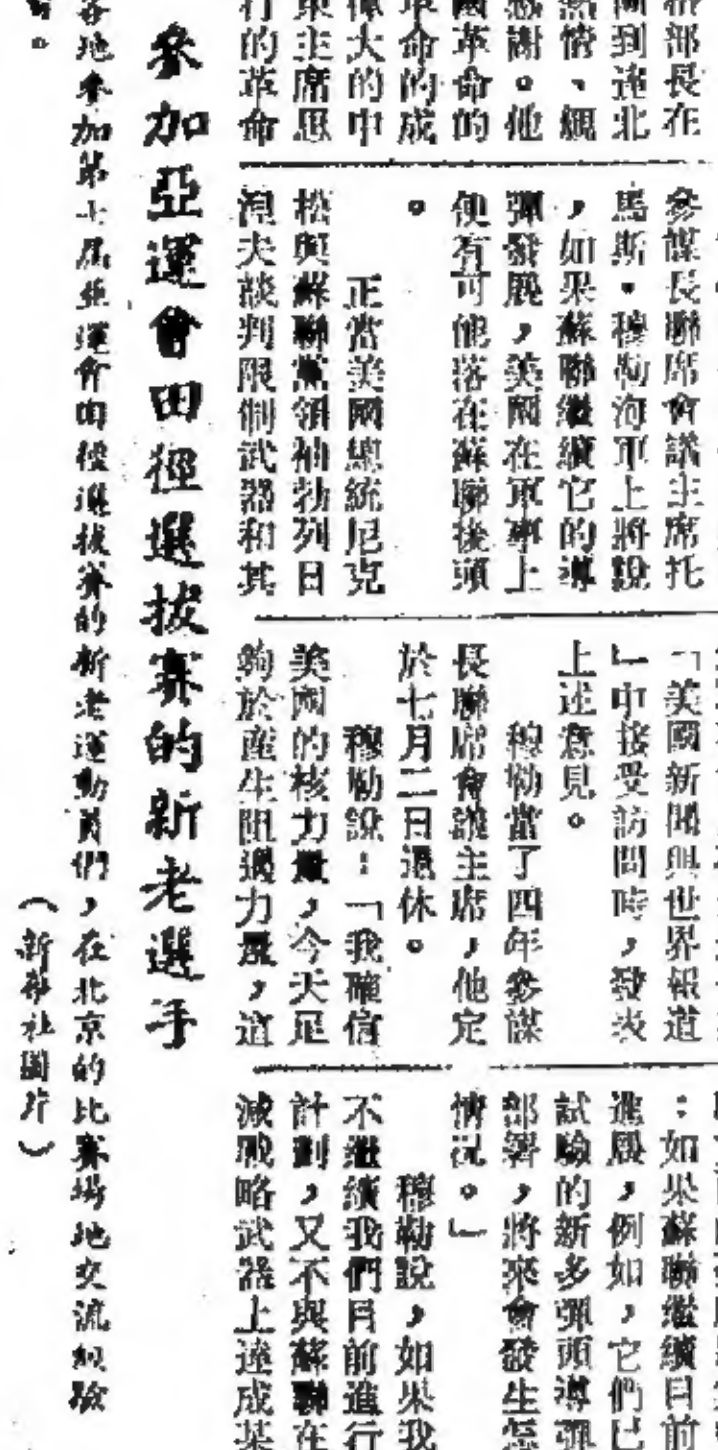 部長在
團到達北
熱情、親
感謝。他
國革命的
革命的成
偉大的中
東主席思
行的革命
參謀長聯席會議主席托
馬斯·穆勒海軍上將說
，如果蘇聯繼續它的導
彈發展，美國在軍事上
便有可能落在蘇聯後頭
。
正當美國總統尼克
松與蘇聯黨領袖勃列日
湼夫談判限制武器和其
「美國新聞與世界報道
」中接受訪問時，發表
上述意見。
穆勒當了四年參謀
長聯席會議主席，他定
於七月二日退休。
穆勒說：「我確信
美國的核力量，今天足
夠於產生阻遏力量，這
：如果蘇聯繼續目前
進展，例如，它們已
試驗的新多彈頭導彈
部署，將來會發生怎
情況。」
穆勒說，如果我
不繼續我們目前進行
計劃，又不與蘇聯在
減戰略武器上達成某
參加亞運會田徑選拔賽的新老選手
各地參加第七届亞運會田徑選拔賽的新老運動員們，在北京的比賽場地交流經驗
。
（新華社圖片）